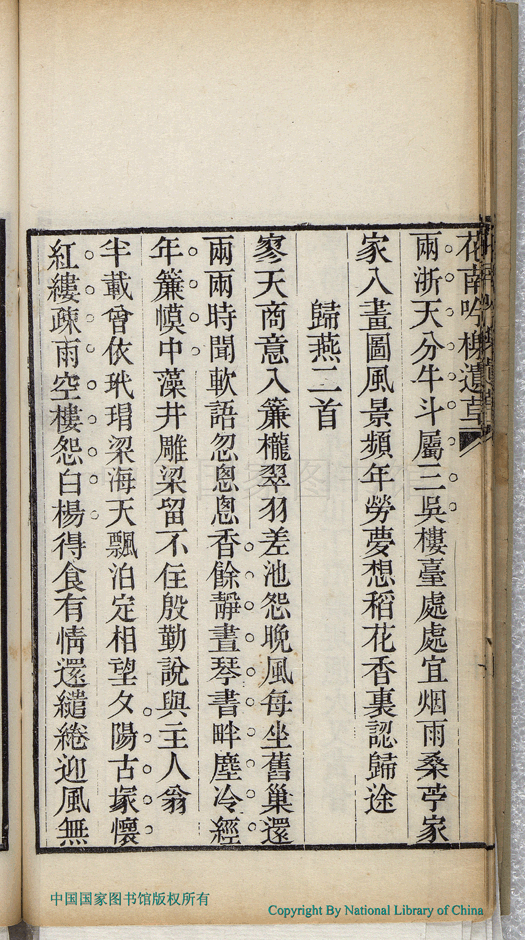 花南吟榭遺草
兩浙天分牛斗屬三吳樓臺處處宜烟雨桑苧家
家入畫圖風景頻年勞夢想稻花香裏認歸途
歸燕二首
寥天商意入簾櫳翠羽差池怨晚風每坐舊巢還
兩兩時聞軟語忽悤悤香餘靜晝琴書畔塵冷經
年簾幙中藻井雕梁留不住殷勤說與主人翁
半載曾依玳瑁梁海天飄泊定相望夕陽古塚懷
紅縷疎雨空樓怨白楊得食有情還繾綣迎風無
中国国家图书馆版权所有
Copyright By National Library of China